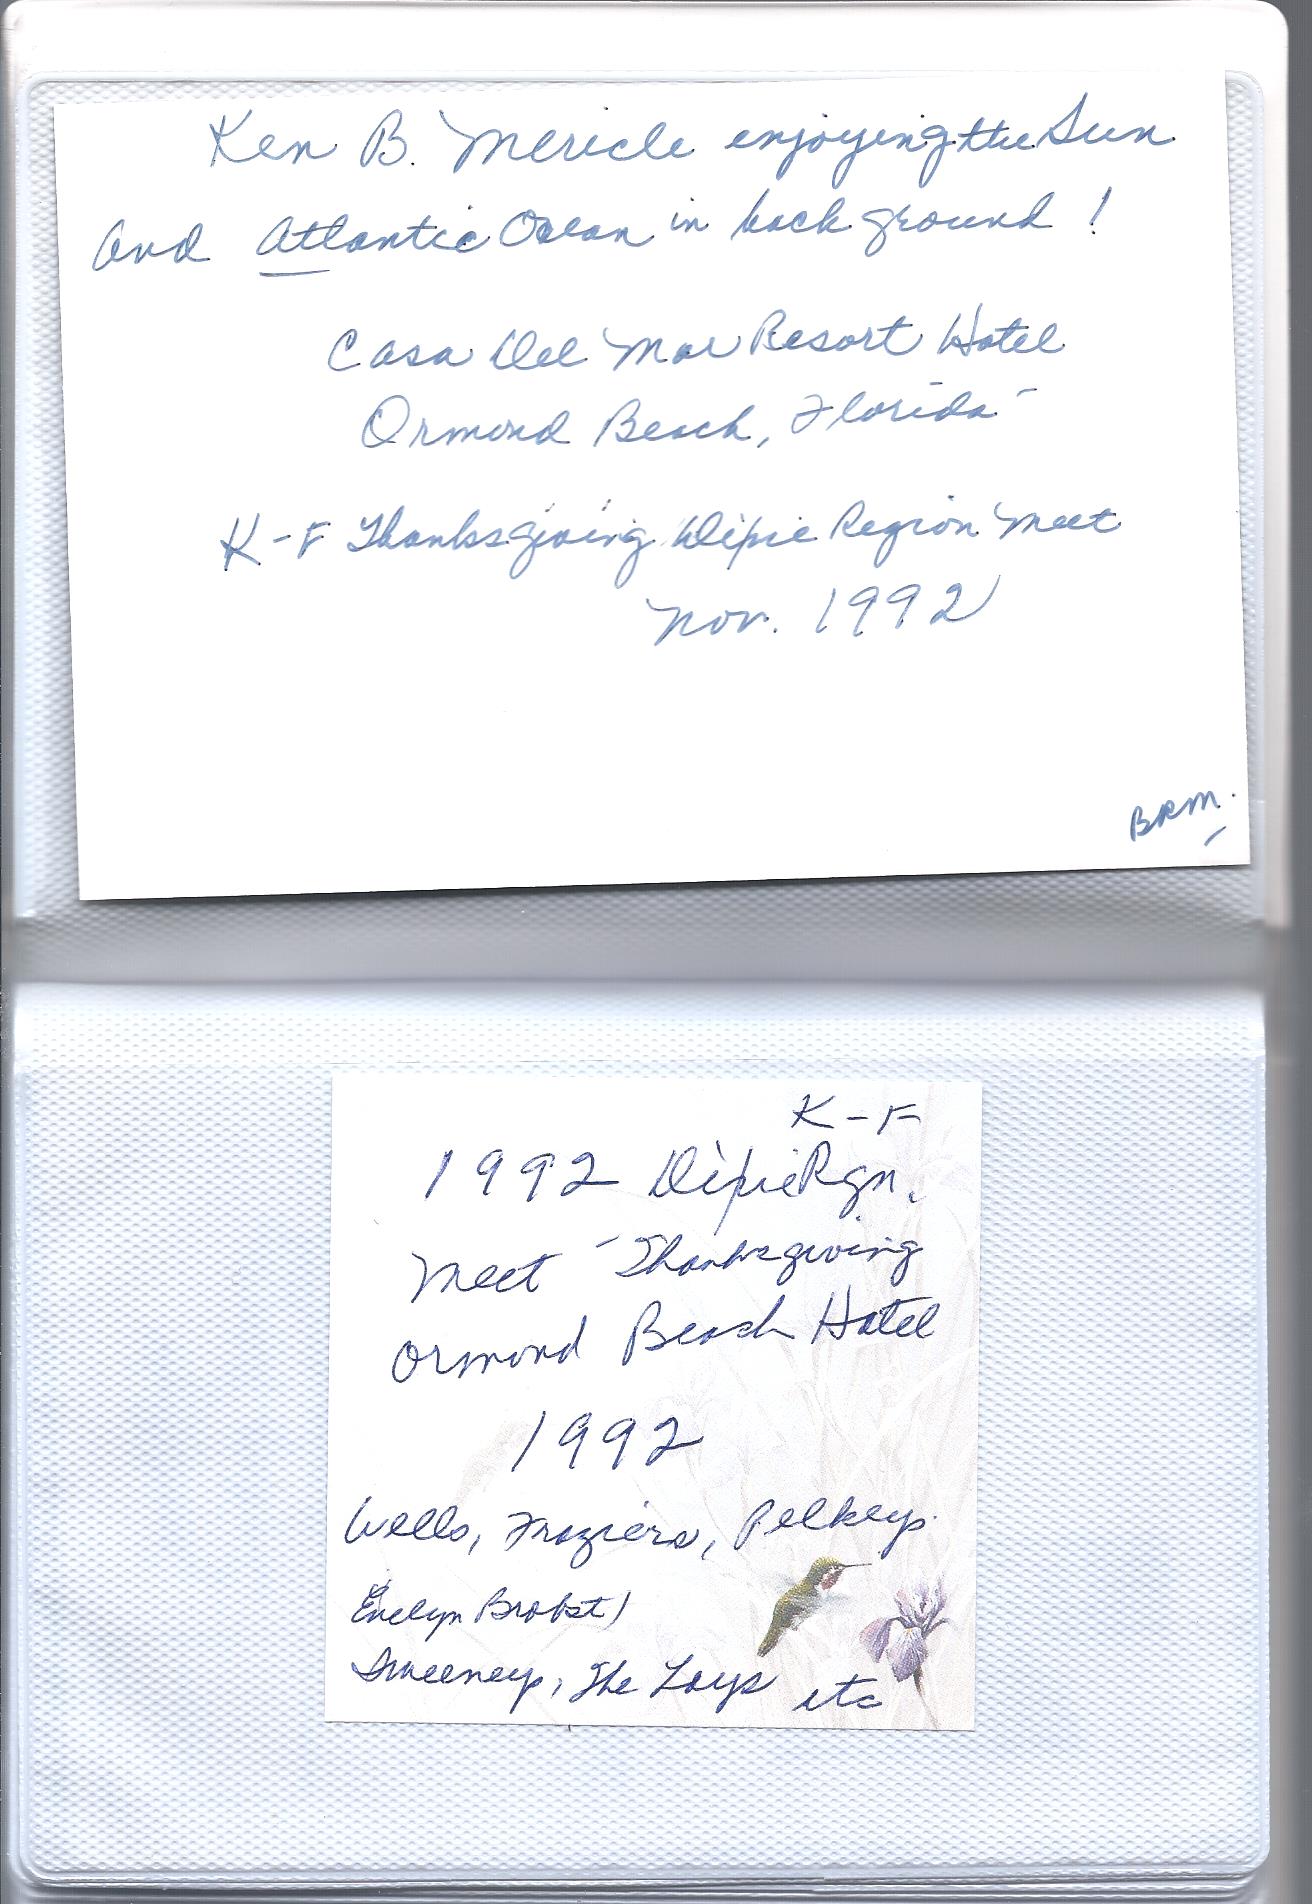 Ken B. Mericle enjoying the Sun
and Atlantic Ocean in background!
Casa Del Mar Resort Hotel
Ormond Beach, Florida -
K-F Thanksgiving Dixie Region Meet
Nov. 1992
BRM.
K-F
1992 Dixie Rgn.
Meet - Thanksgiving
Ormond Beach Hotel
1992
Wells, Fraziers, Pelkeys.
Evelyn Brobst,
Sweeneys, The Loys etc